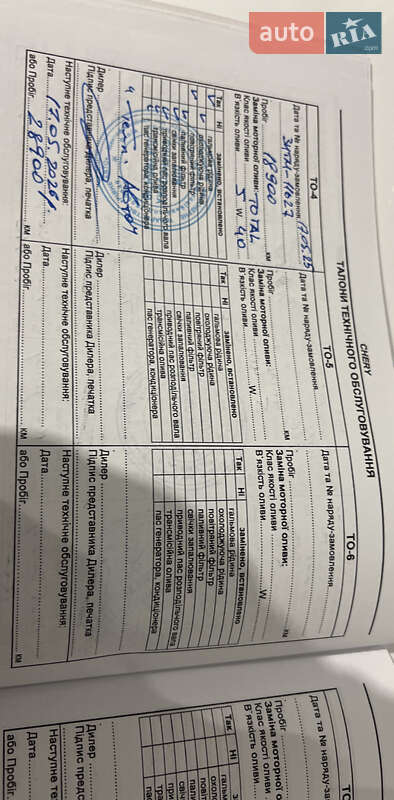 auto RIA .com
CHERY
ТАЛОНИ ТЕХНІЧНОГО ОБСЛУГОВУВАННЯ
ТО-4
Дата та № наряду-замовлення: 17.05.25
Пробіг 18900 км
Заміна моторної оливи: TOTAL
Клас якості оливи
В'язкість оливи 5 W 40
Так Ні замінено, встановлено
гальмова рідина
охолоджуюча рідина
повітряний фільтр
паливний фільтр
свічки запалювання
привідний пас розподільного вала
трансмісійна олива
пас генератора, кондиціонера
Дилер
Підпис представника Дилера, печатка
Наступне технічне обслуговування:
Дата 17.05.202
або Пробіг 28900 км
ТО-5
Дата та № наряду-замовлення
Пробіг км
Заміна моторної оливи:
Клас якості оливи
В'язкість оливи W
Так Ні замінено, встановлено
гальмова рідина
охолоджуюча рідина
повітряний фільтр
паливний фільтр
свічки запалювання
привідний пас розподільного вала
трансмісійна олива
пас генератора, кондиціонера
Дилер
Підпис представника Дилера, печатка
Наступне технічне обслуговування:
Дата
або Пробіг км
ТО-6
Дата та № наряду-замовлення
Пробіг км
Заміна моторної оливи:
Клас якості оливи
В'язкість оливи W
Так Ні замінено, встановлено
гальмова рідина
охолоджуюча рідина
повітряний фільтр
паливний фільтр
свічки запалювання
привідний пас розподільного вала
трансмісійна олива
пас генератора, кондиціонера
Дилер
Підпис представника Дилера, печатка
Наступне технічне обслуговування:
Дата
або Пробіг км
Дата та № наряду-за
Пробіг
Заміна моторної
Клас якості оливи
В'язкість оливи
Так Ні зам
гальм
охоло
повіт
палив
свічки
приві
транс
пас ге
Дилер
Підпис представ
Наступне те
Дата
або Пробіг